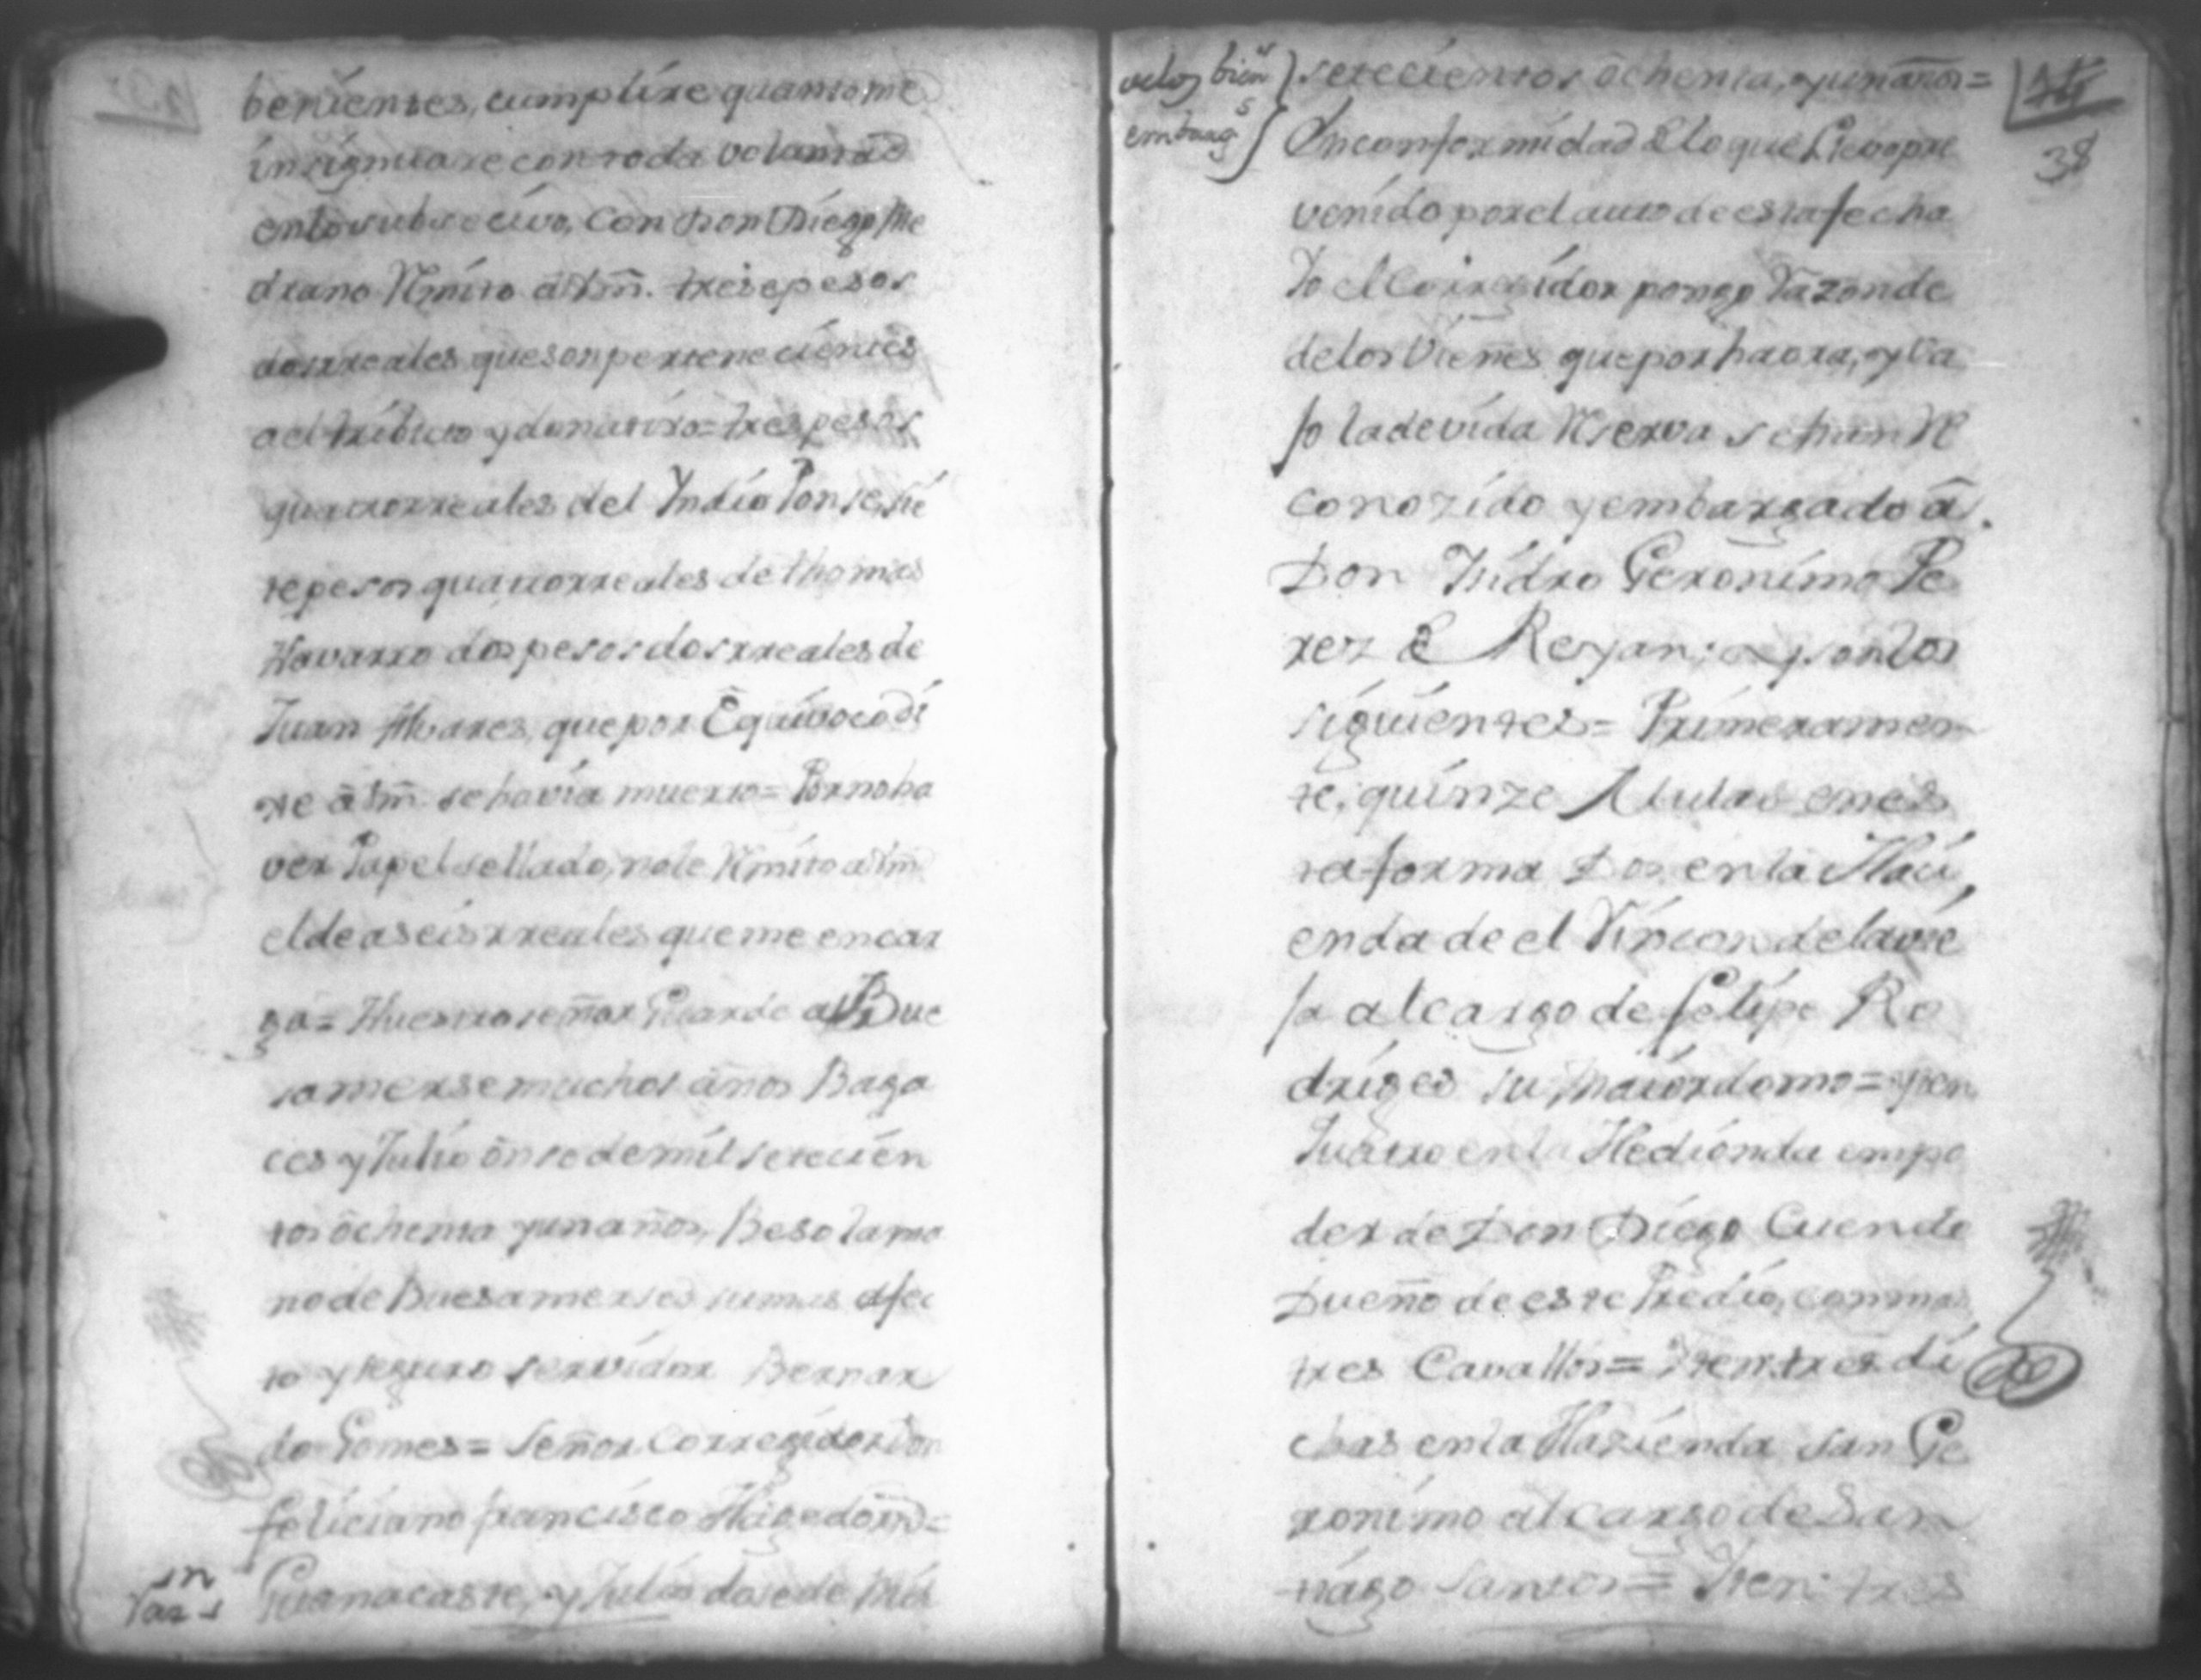 benientes, cumplire quanto me
insignuare con toda voluntad
en lo subsecivo, Con Don Diego Me
drano Rmito â Vm̃. trese pesos
dos rreales que son pertenecientes
a el tributo y donativo = tres pesos
quatro rreales del Yndio Ponse, sie
te pesos quatro rreales de thomas
Navarro dos pesos dos rreales de
Juan Alvares, que por Êquivoco di
xe â Vm̃. se havia muerto = Por no ha
ver Papel sellado, no le Rmito a Vm̃
el de a seis rreales que me encar
ga = Nuestro señor Guarde a Bue
sa merse muchos años Baga
ces y Julio ônse de mil setecien
tos ôchenta y un años, Beso la ma
no de Buesa merses su mas afec
to y seguro servidor Bernar
do Gomes = Señor Corregidor Don
feliciano francisco Hagedorn =
Guanacaste, y Julio dose de Mil
Raz.n
de los bien.s
embarg.s
setecientos ôchenta, y un años =
En conformidad de lo que llevo pre
venido por el auto de esta fecha
Yo el Corregidor pongo Razon de
de los Vienes que por haora, y ba
jo la devida Reserva se han Re
conozido y embargado â
Don Isidro Geronimo Pe
rez de Reyan; y son los
siguientes = Primeramen
te, quinze Mulas en es
ta forma Dos en la Haci
enda de el Rincon de la vie
ja al cargo de felipe Ro
driges su Maiordomo =
Quatro en la Hedionda en po
der de Don Diego Cuende
Dueño de este Predio, con mas
tres Cavallos = Iten tres di
chas en la Hazienda San Ge
ronimo al cargo de San
tiago Santos = Iten tres
38